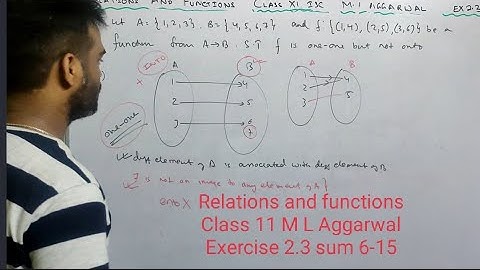 RELATIONS AND FUNCTIONS CLASS XI ISC M.L AGGARWAL EX 2.3
Let A = {1,2,3}, B = {4,5,6,7} and f: {(1,4), (2,5), (3,6)} be a
function from A→B. S.T f is one-one but not onto
INTO A B A B
1 4 1 4
2 5 2 5
3 6 3
7
one-one
diff element of A is associated with diff element of B
7 is not an image to any element of A}
onto X
Relations and functions
Class 11 M L Aggarwal
Exercise 2.3 sum 6-15